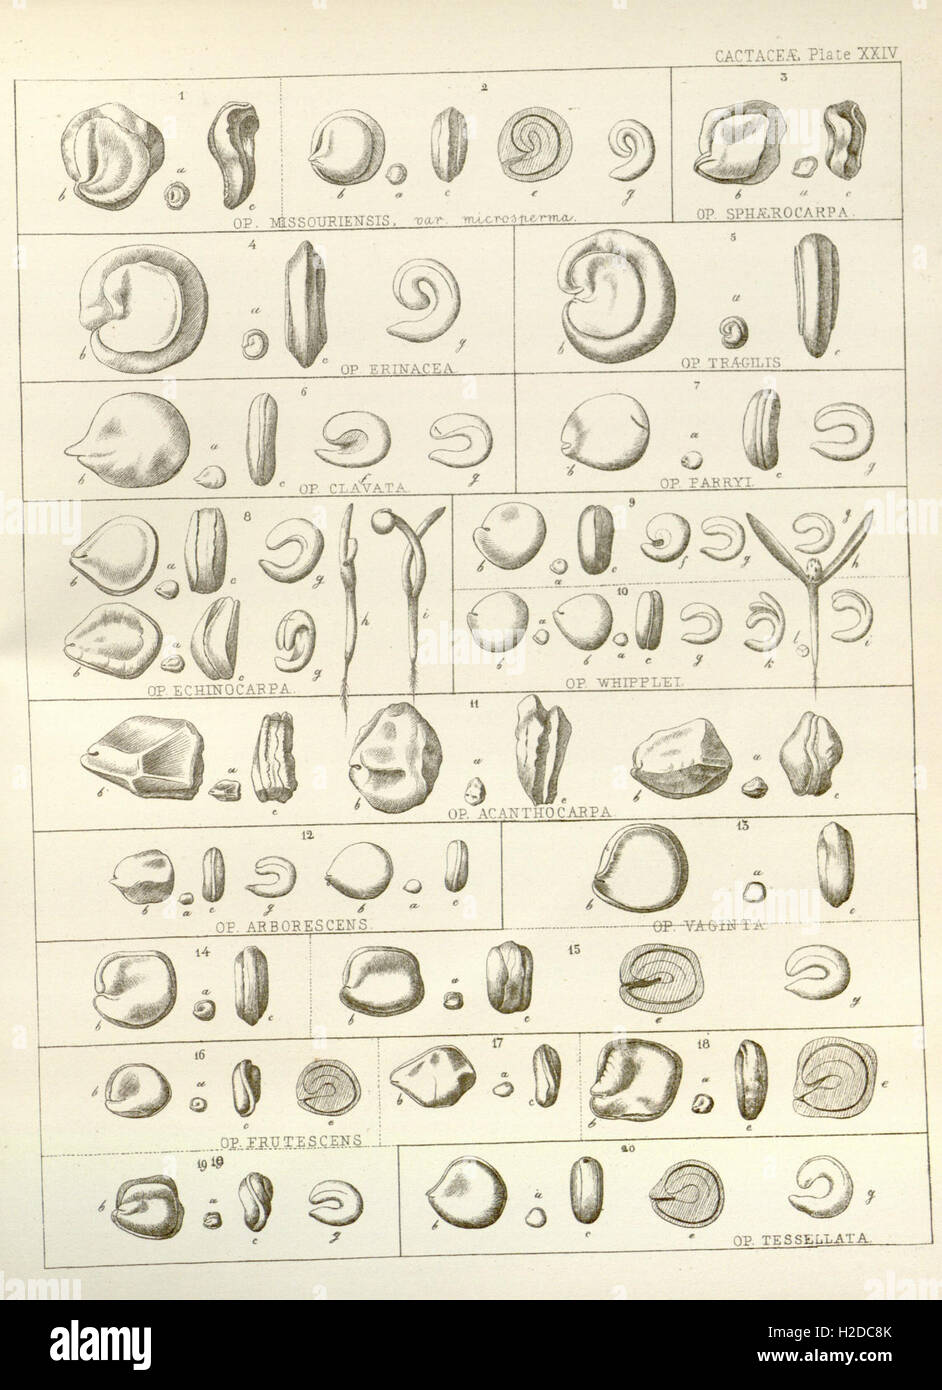 CACTACEÆ, Plate XXIV
1 2 3
a b c
b a c e g
b a c
OP. MISSOURIENSIS, var. microsperma.
OP. SPHÆROCARPA.
4 5
b a c g
b a c
OP. ERINACEA.
OP. TRAGILIS
6 7
b a c f g
b a c g
OP. CLAVATA.
OP. PARRYI.
8 9
b a c g h i
b a c f g g h
10
b a c g
b a b a c g k l i
OP. ECHINOCARPA.
OP. WHIPPLEI.
11
b a c b a c b a c
OP. ACANTHOCARPA
12 13
b a c g b a c
b a c
OP. ARBORESCENS.
OP. VAGINTA
14 15
b a c
b a c e g
16 17 18
b a c e
b a c
b a c e
OP. FRUTESCENS
19 19 20
b a c g
b a c e g
OP. TESSELLATA.
alamy
alamy stock photo
H2DC8K
www.alamy.com